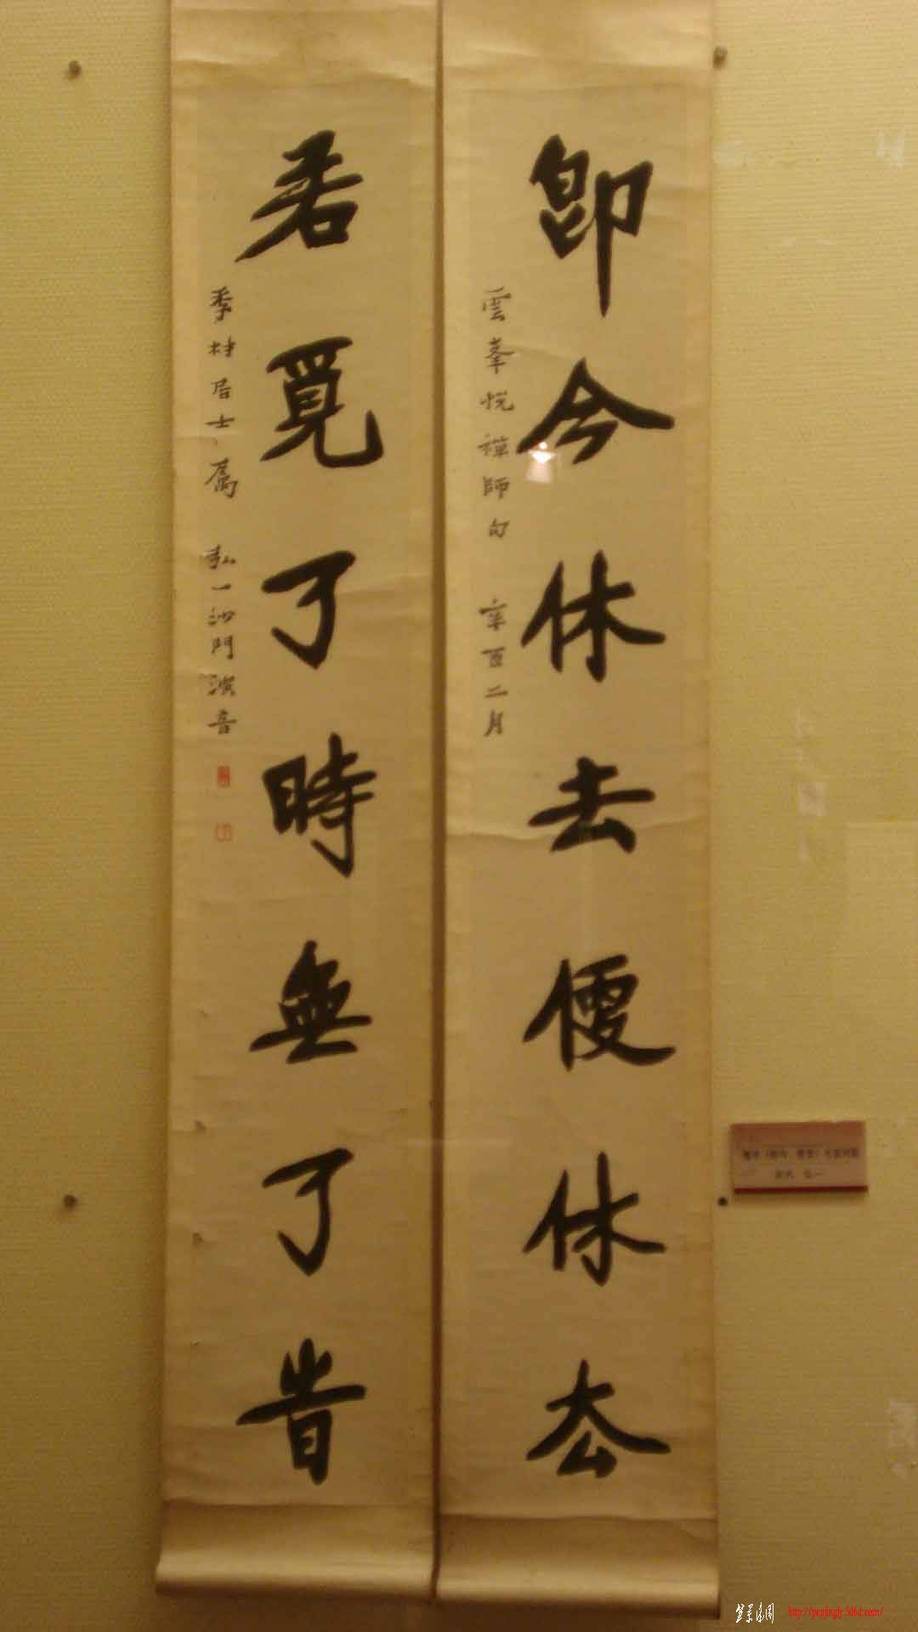 即今休去便休去
雲峯悦禪師句 辛酉二月
若覓了時無了旹
季村居士屬 弘一沙門演音
http://penjingly.5d6d.com/